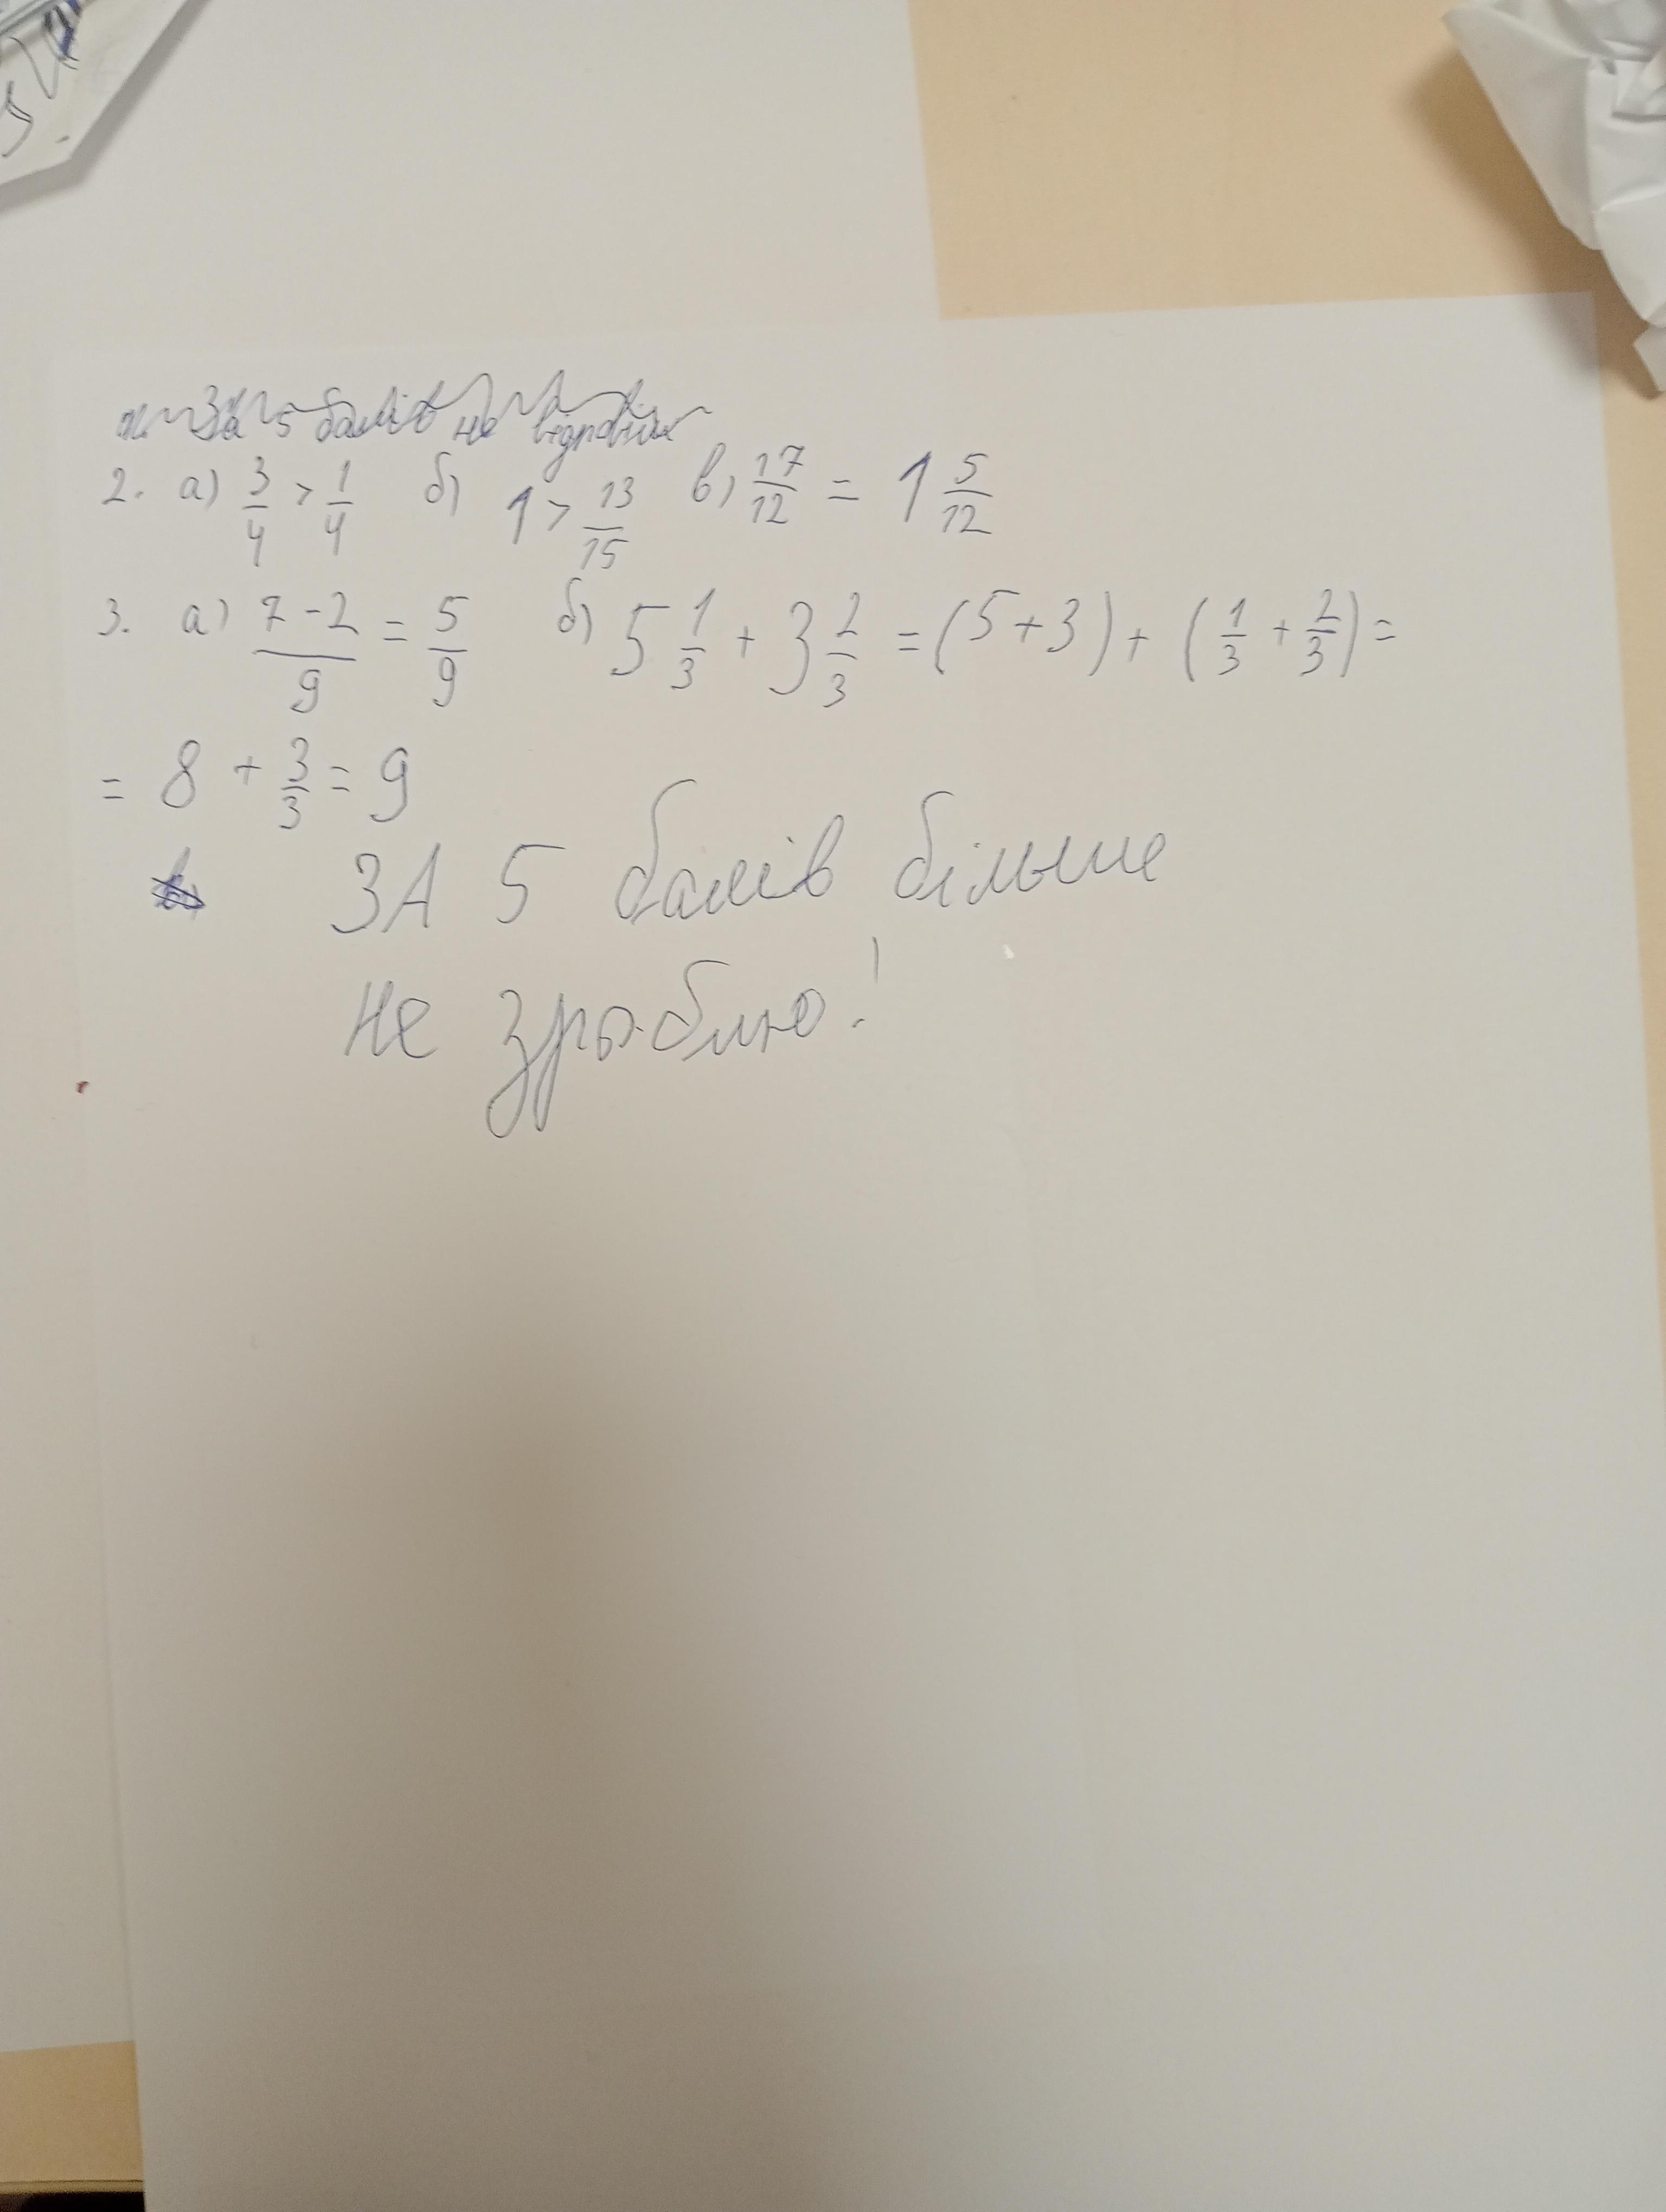 За 5 балів не відповім
2. а) 3/4 > 1/4 б) 1 > 13/15 в) 17/12 = 1 5/12
3. а) (7-2)/9 = 5/9 б) 5 1/3 + 3 2/3 = (5+3) + (1/3 + 2/3) =
= 8 + 3/3 = 9
ЗА 5 балів більше
не зроблю!